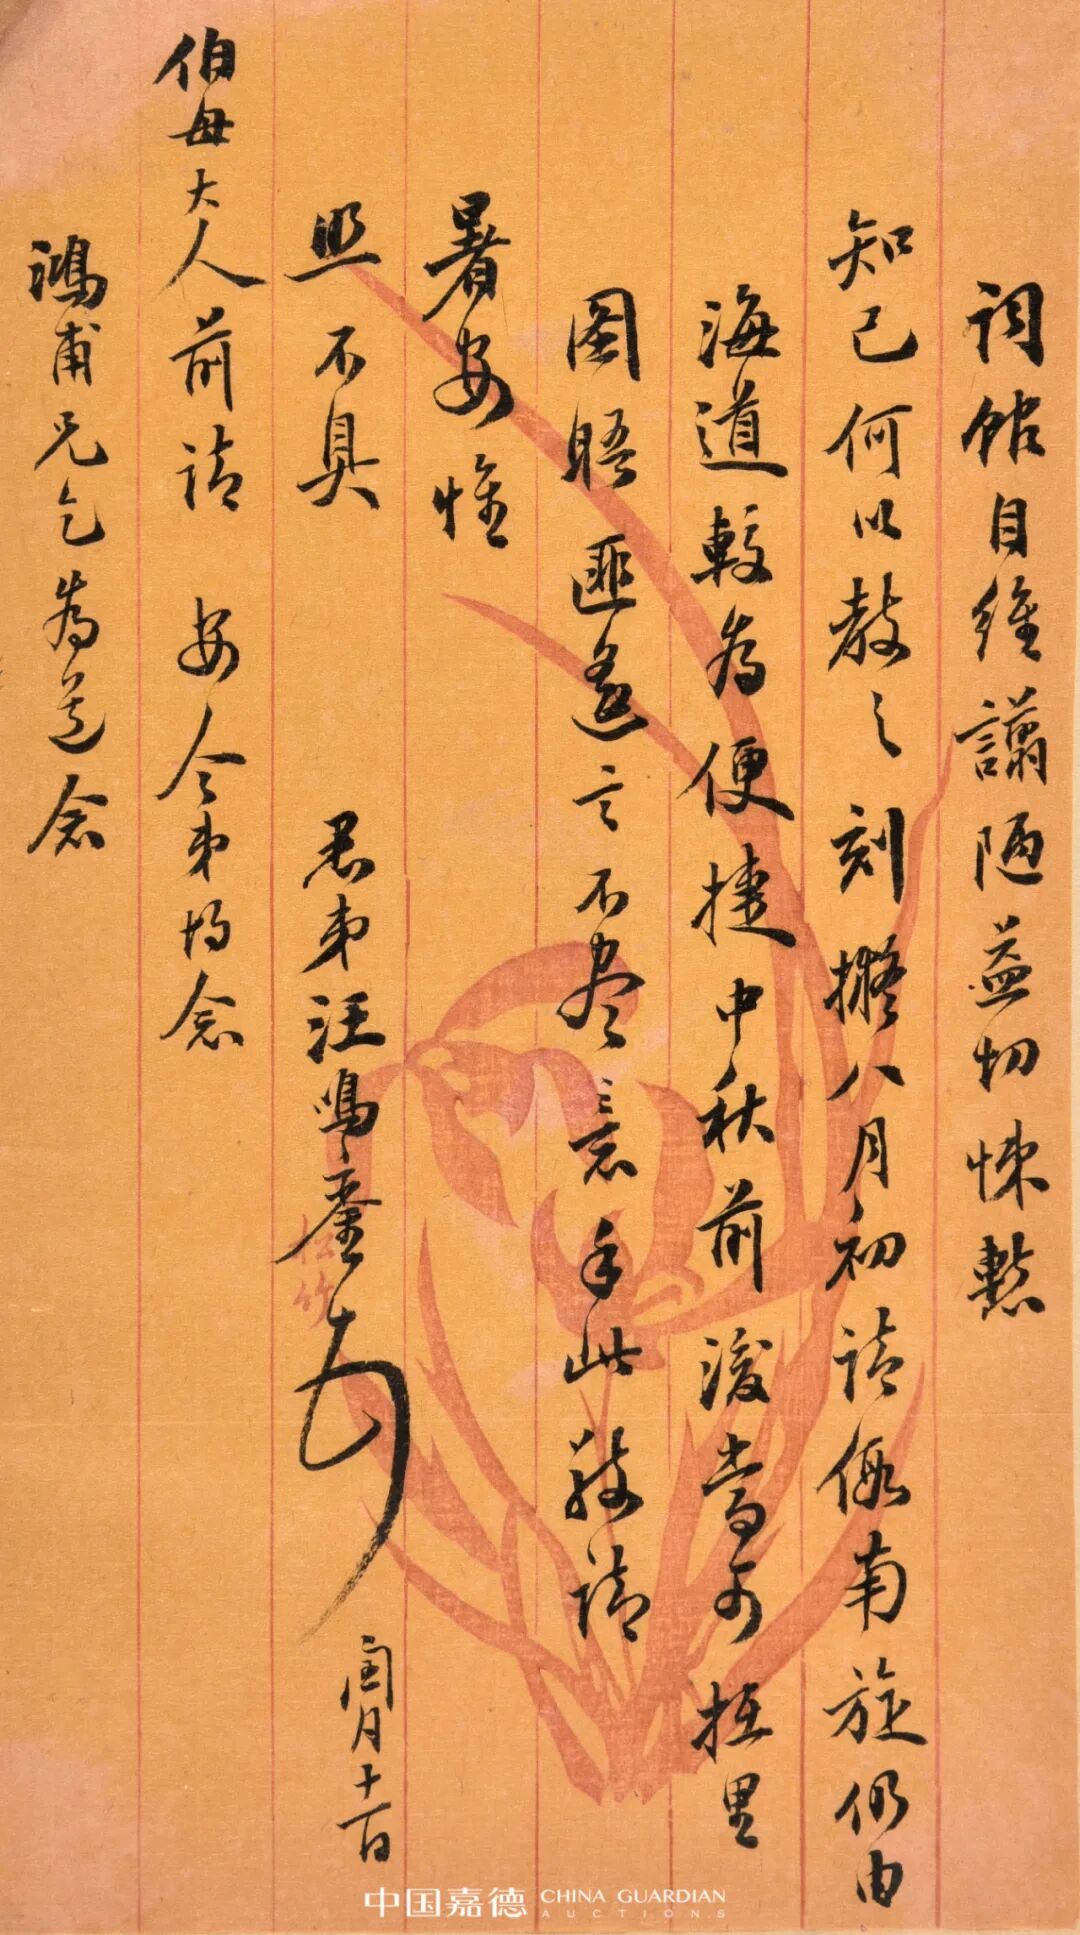 詞館自維譾陋益切悚慙
知己何以教之刻擬八月初請假南旋仍由
海道較為便捷中秋前後當可抵里
圖晤匪遙言不盡意手此敬請
暑安惟
照不具
愚弟汪鳴鑾頓
閏月十一日
伯母大人前請安令弟均念
鴻甫兄乞為道念
中国嘉德 CHINA GUARDIAN AUCTIONS